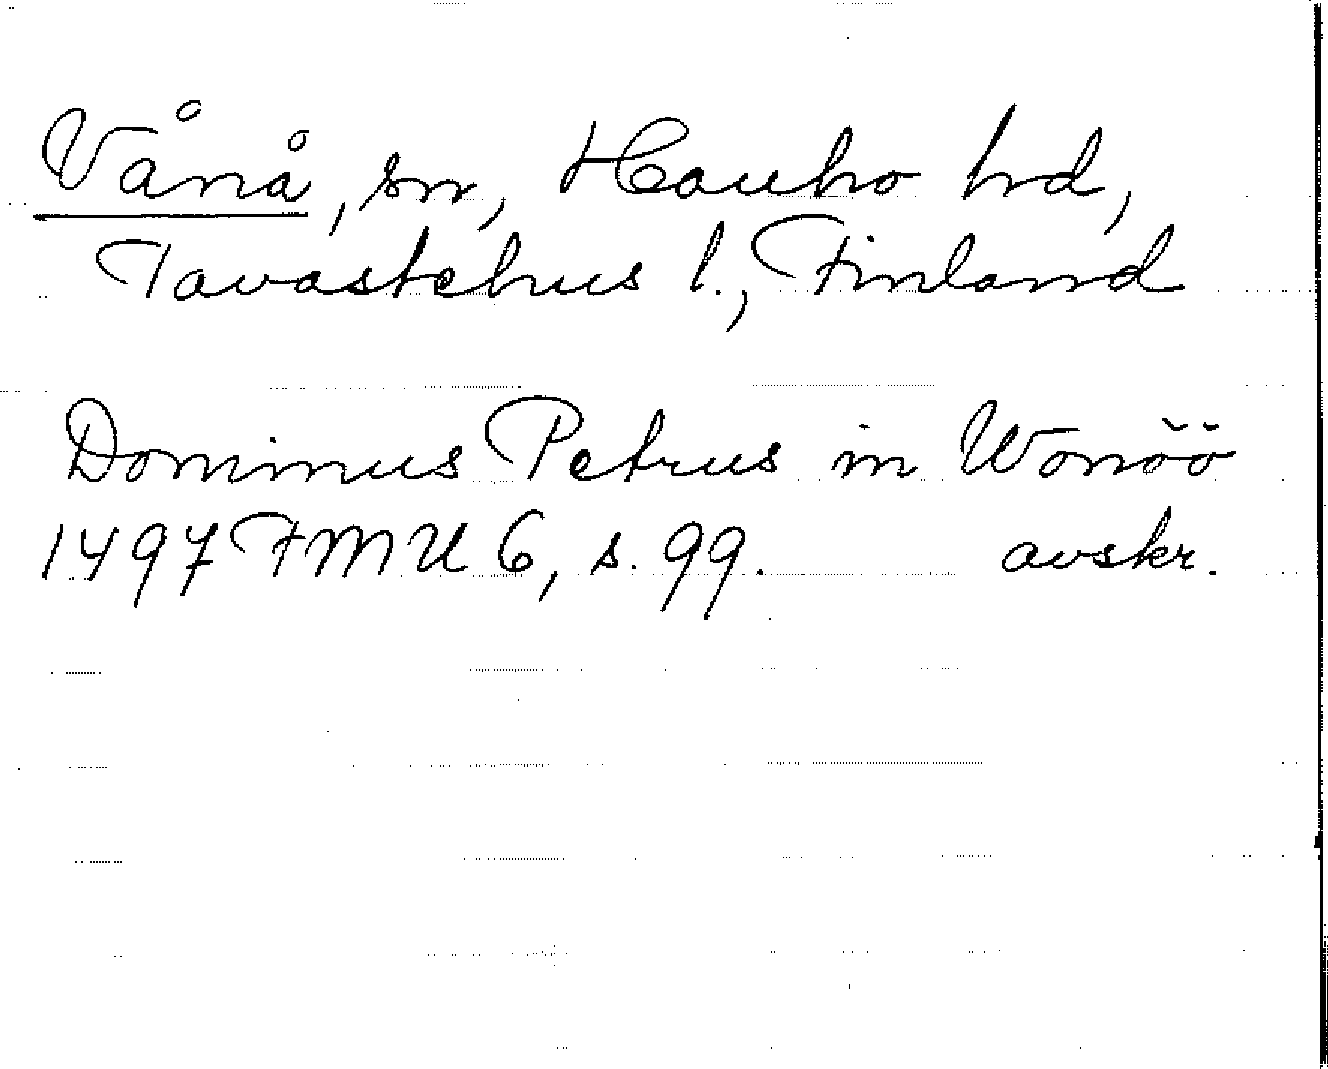 Vånå, sn, Hauho hd,
Tavastehus l., Finland
Dominus Petrus in Wonöö
1497 FMU 6, s. 99. avskr.